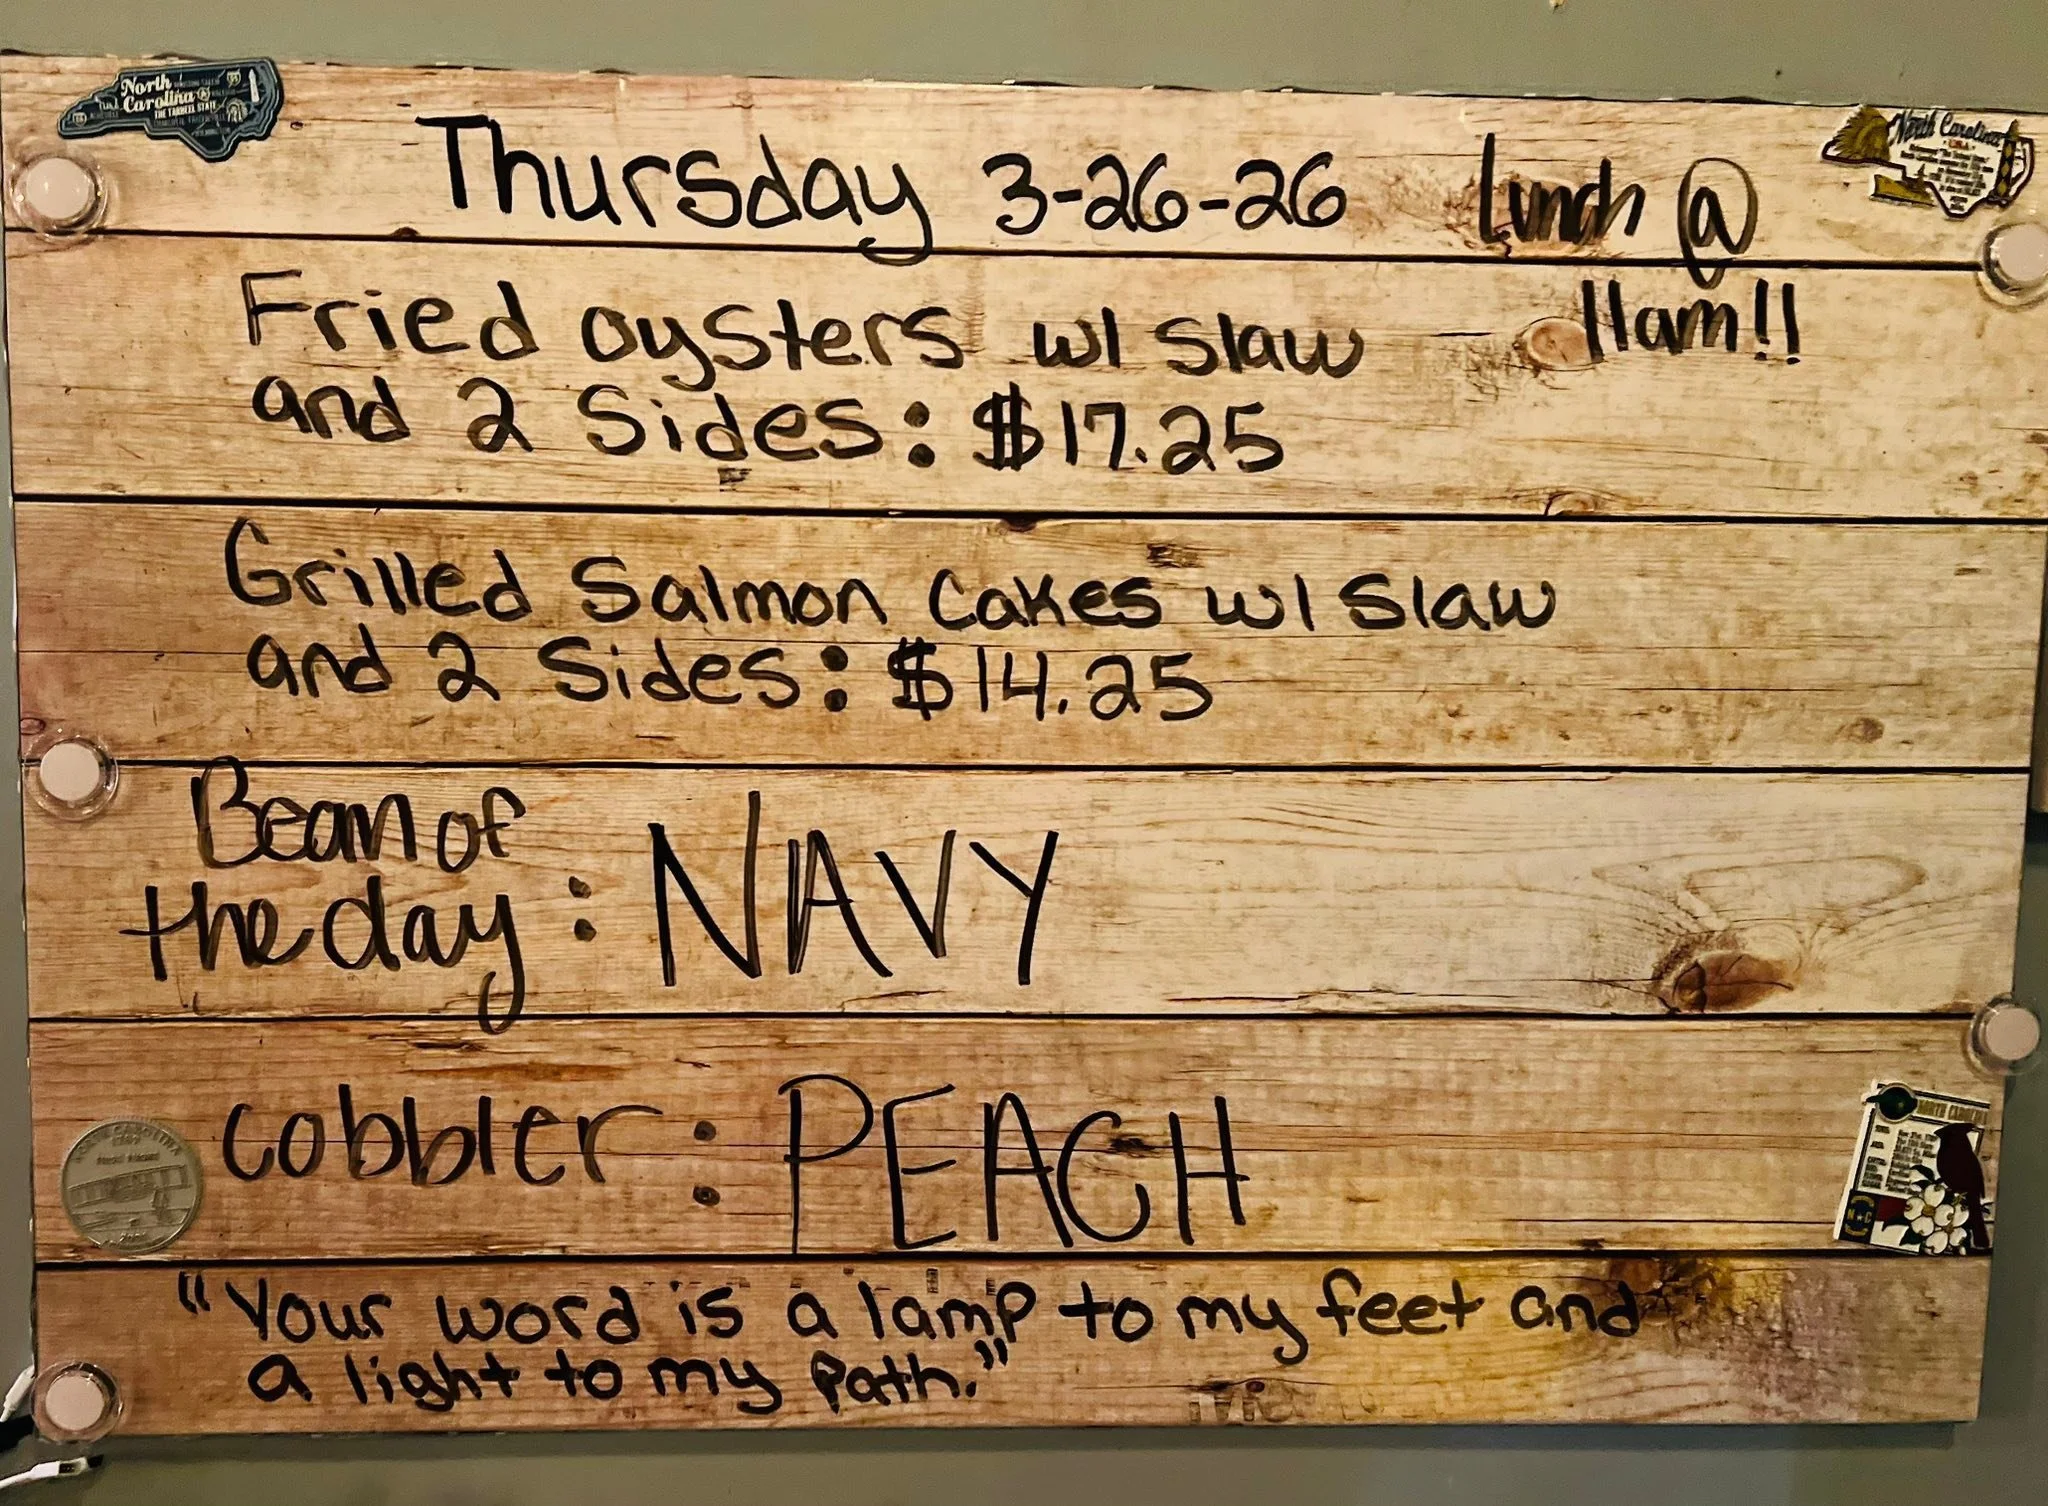 Thursday 3-26-26 Lunch @
11am!!
Fried oysters w/ Slaw
and 2 Sides: $17.25
Grilled Salmon Cakes w/ Slaw
and 2 Sides: $14.25
Bean of
the day: NAVY
cobbler: PEACH
"Your word is a lamp to my feet and
a light to my path."
North
Carolina
THE TARHEEL STATE
North Carolina
NORTH CAROLINA
NORTH CAROLINA